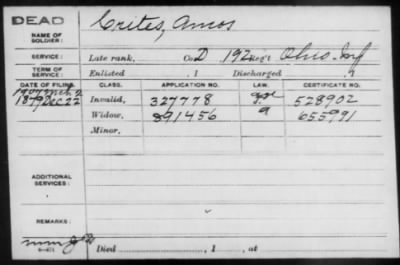 DEAD
NAME OF SOLDIER: Crites, Amos
SERVICE: Late rank, Co. D, 192 Reg't Ohio Inf
TERM OF SERVICE: Enlisted , 1 Discharged , 1
DATE OF FILING. CLASS. APPLICATION NO. LAW. CERTIFICATE NO.
1879 Dec 22 Invalid, 327778 528902
Widow, 891456 655991
Minor,
ADDITIONAL SERVICES:
REMARKS:
Died , 1 , at